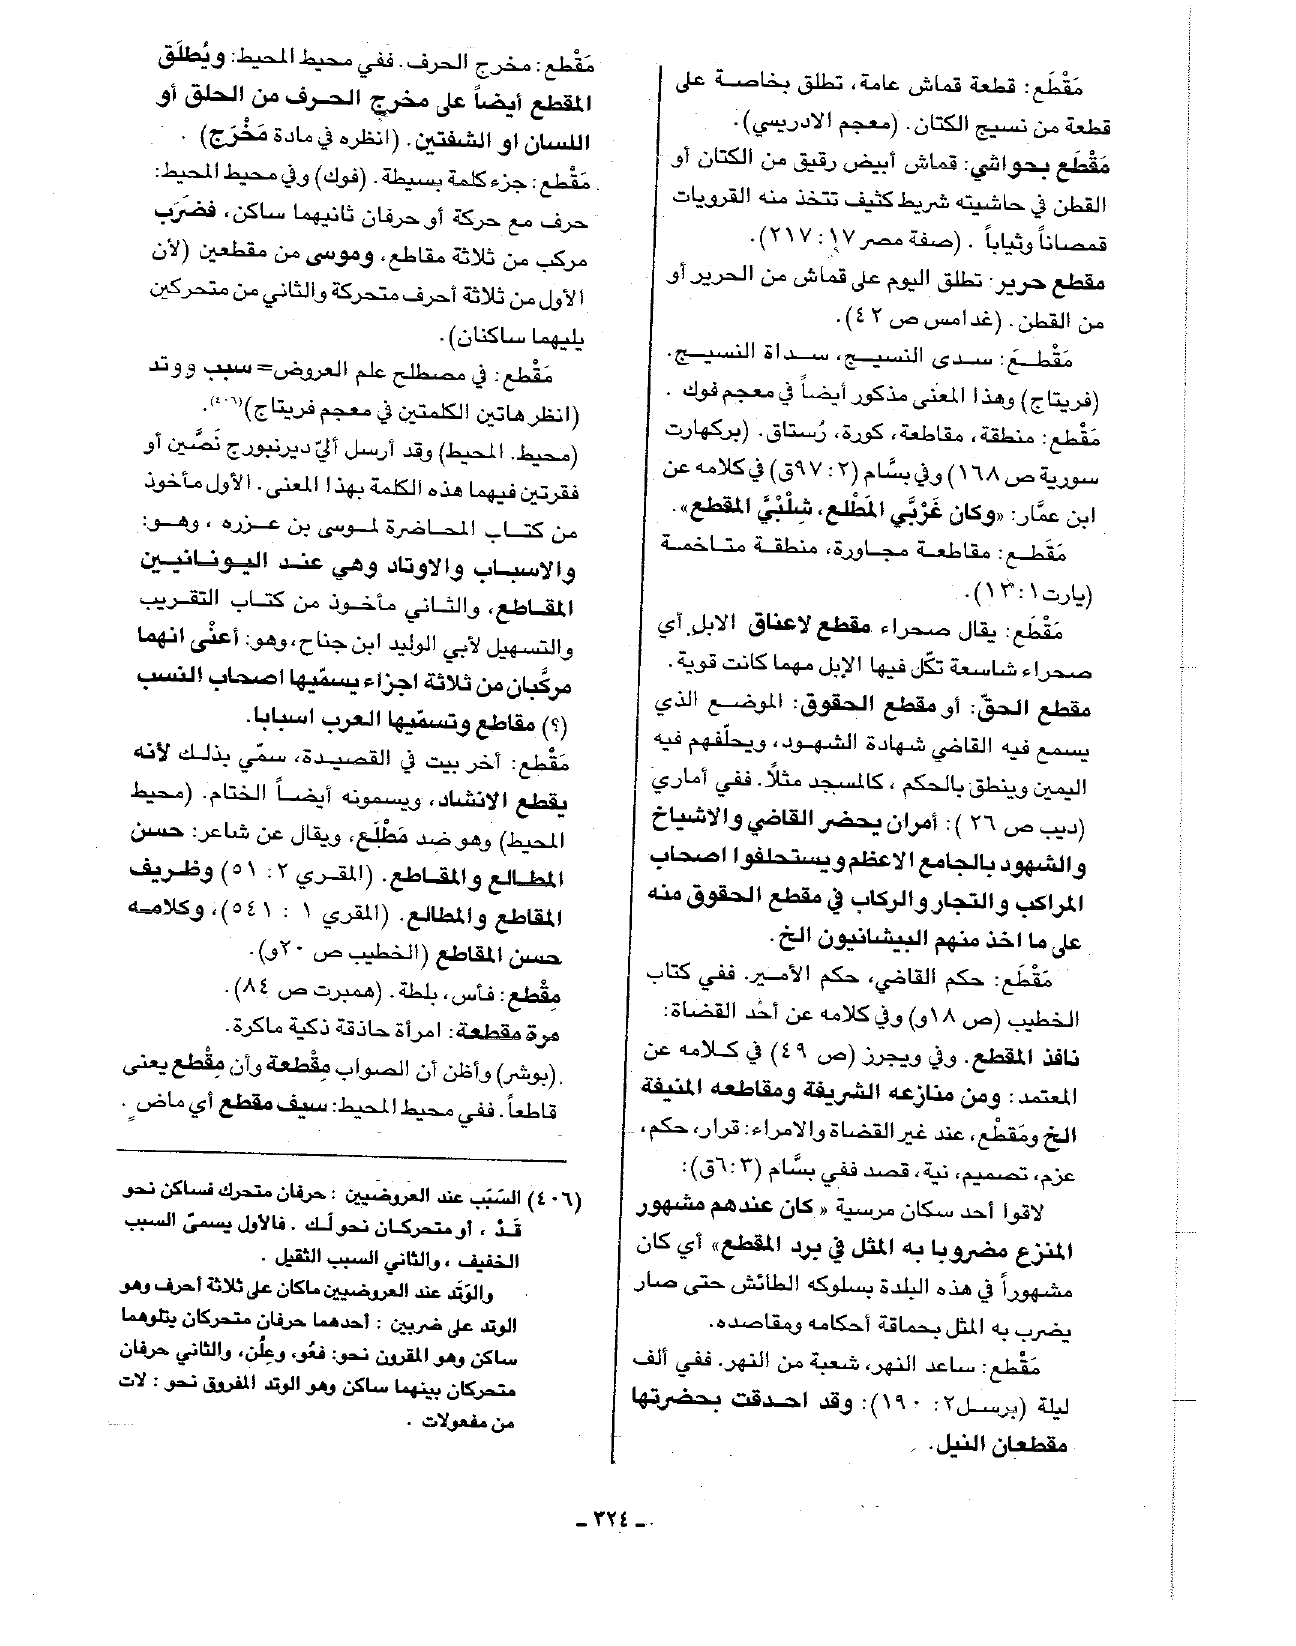 مَقْطَع: قطعة قماش عامة، تطلق بخاصة على
قطعة من نسيج الكتان. (معجم الادريسي).
مَقْطَع بحواشي: قماش أبيض رقيق من الكتان أو
القطن في حاشيته شريط كثيف تتخذ منه القرويات
قمصاناً وثياباً . (صفة مصر ١٧: ٢١٧).
مقطع حرير: تطلق اليوم على قماش من الحرير أو
من القطن. (غدامس ص ٤٢).
مَقْطَع: سدى النسيج، سداة النسيج.
(فريتاج) وهذا المعنى مذكور أيضاً في معجم فوك .
مَقْطَع: منطقة، مقاطعة، كورة، رُستاق. (بركهارت
سورية ص ١٦٨) وفي بسَّام (٢: ٩٧ق) في كلامه عن
ابن عمَّار: «وكان غَرْبَّي المَطْلع، شلْبَّي المقطع».
مَقْطَع: مقاطعة مجاورة، منطقة متاخمة
(بارت١: ١٣).
مَقْطَع: يقال صحراء مقطع لاعناق الابل أي
صحراء شاسعة تكّل فيها الإبل مهما كانت قوية.
مقطع الحقّ: أو مقطع الحقوق: الموضع الذي
يسمع فيه القاضي شهادة الشهود، ويحلّفهم فيه
اليمين وينطق بالحكم ، كالمسجد مثلاً. ففي أماري
(ديب ص ٢٦ ): أمران يحضر القاضي والاشياخ
والشهود بالجامع الاعظم ويستحلفوا اصحاب
المراكب والتجار والركاب في مقطع الحقوق منه
على ما اخذ منهم البيشانيون الخ.
مَقْطَع: حكم القاضي، حكم الأمير. ففي كتاب
الخطيب (ص ١٨و) وفي كلامه عن أحد القضاة:
نافذ المقطع. وفي ويجرز (ص ٤٩) في كلامه عن
المعتمد: ومن منازعه الشريفة ومقاطعه المنيفة
الخ ومَقْطَع، عند غير القضاة والامراء: قرار، حكم،
عزم، تصميم، نية، قصد ففي بسَّام (٣: ٦ق):
لاقوا أحد سكان مرسية « كان عندهم مشهور
المنزع مضروبا به المثل في برد المقطع» أي كان
مشهوراً في هذه البلدة بسلوكه الطائش حتى صار
يضرب به المثل بحماقة أحكامه ومقاصده.
مَقْطَع: ساعد النهر، شعبة من النهر. ففي ألف
ليلة (برسل٢: ١٩٠): وقد احدقت بحضرتها
مقطعان النيل.
مَقْطع: مخرج الحرف. ففي محيط المحيط: ويُطلَق
المقطع أيضاً على مخرج الحرف من الحلق أو
اللسان او الشفتين. (انظره في مادة مَخْرَج) .
مَقْطع: جزء كلمة بسيطة. (فوك) وفي محيط المحيط:
حرف مع حركة أو حرفان ثانيهما ساكن، فضَرَب
مركب من ثلاثة مقاطع، وموسى من مقطعين (لأن
الأول من ثلاثة أحرف متحركة والثاني من متحركين
يليهما ساكنان).
مَقْطع: في مصطلح علم العروض= سبب ووتد
(انظر هاتين الكلمتين في معجم فريتاج)(٤٠٦).
(محيط. المحيط) وقد أرسل أليّ ديرنبورج نَصَّين أو
فقرتين فيهما هذه الكلمة بهذا المعنى. الأول مأخوذ
من كتاب المحاضرة لموسى بن عزره ، وهو:
والاسباب والاوتاد وهي عند اليونانيين
المقاطع، والثاني مأخوذ من كتاب التقريب
والتسهيل لأبي الوليد ابن جناح، وهو: أعنْى انهما
مركَّبان من ثلاثة اجزاء يسمّيها اصحاب النسب
(؟) مقاطع وتسمّيها العرب اسبابا.
مَقْطع: أخر بيت في القصيدة، سمّي بذلك لأنه
يقطع الانشاد، ويسمونه أيضاً الختام. (محيط
المحيط) وهو ضد مَطْلَع، ويقال عن شاعر: حسن
المطالع والمقاطع. (المقري ٢: ٥١) وظريف
المقاطع والمطالع. (المقري ١ : ٥٤١)، وكلامه
حسن المقاطع (الخطيب ص ٢٠و).
مِقْطع: فأس، بلطة. (همبرت ص ٨٤).
مرة مقطعة: امرأة حاذقة ذكية ماكرة.
(بوشر) وأظن أن الصواب مِقْطعة وأن مِقْطع يعني
قاطعاً. ففي محيط المحيط: سيف مقطع أي ماضٍ .
(٤٠٦) السَبَب عند العروضيين : حرفان متحرك فساكن نحو
قَدْ ، أو متحركان نحو لَك . فالاول يسمىّ السبب
الخفيف ، والثاني السبب الثقيل .
والوَتَد عند العروضيين ماكان على ثلاثة أحرف وهو
الوتد على ضربين : أحدهما حرفان متحركان يتلوهما
ساكن وهو المقرون نحو: فعُو، وعِلُن، والثاني حرفان
متحركان بينهما ساكن وهو الوتد المفروق نحو : لات
من مفعولات .
ـ ٣٢٤ ـ